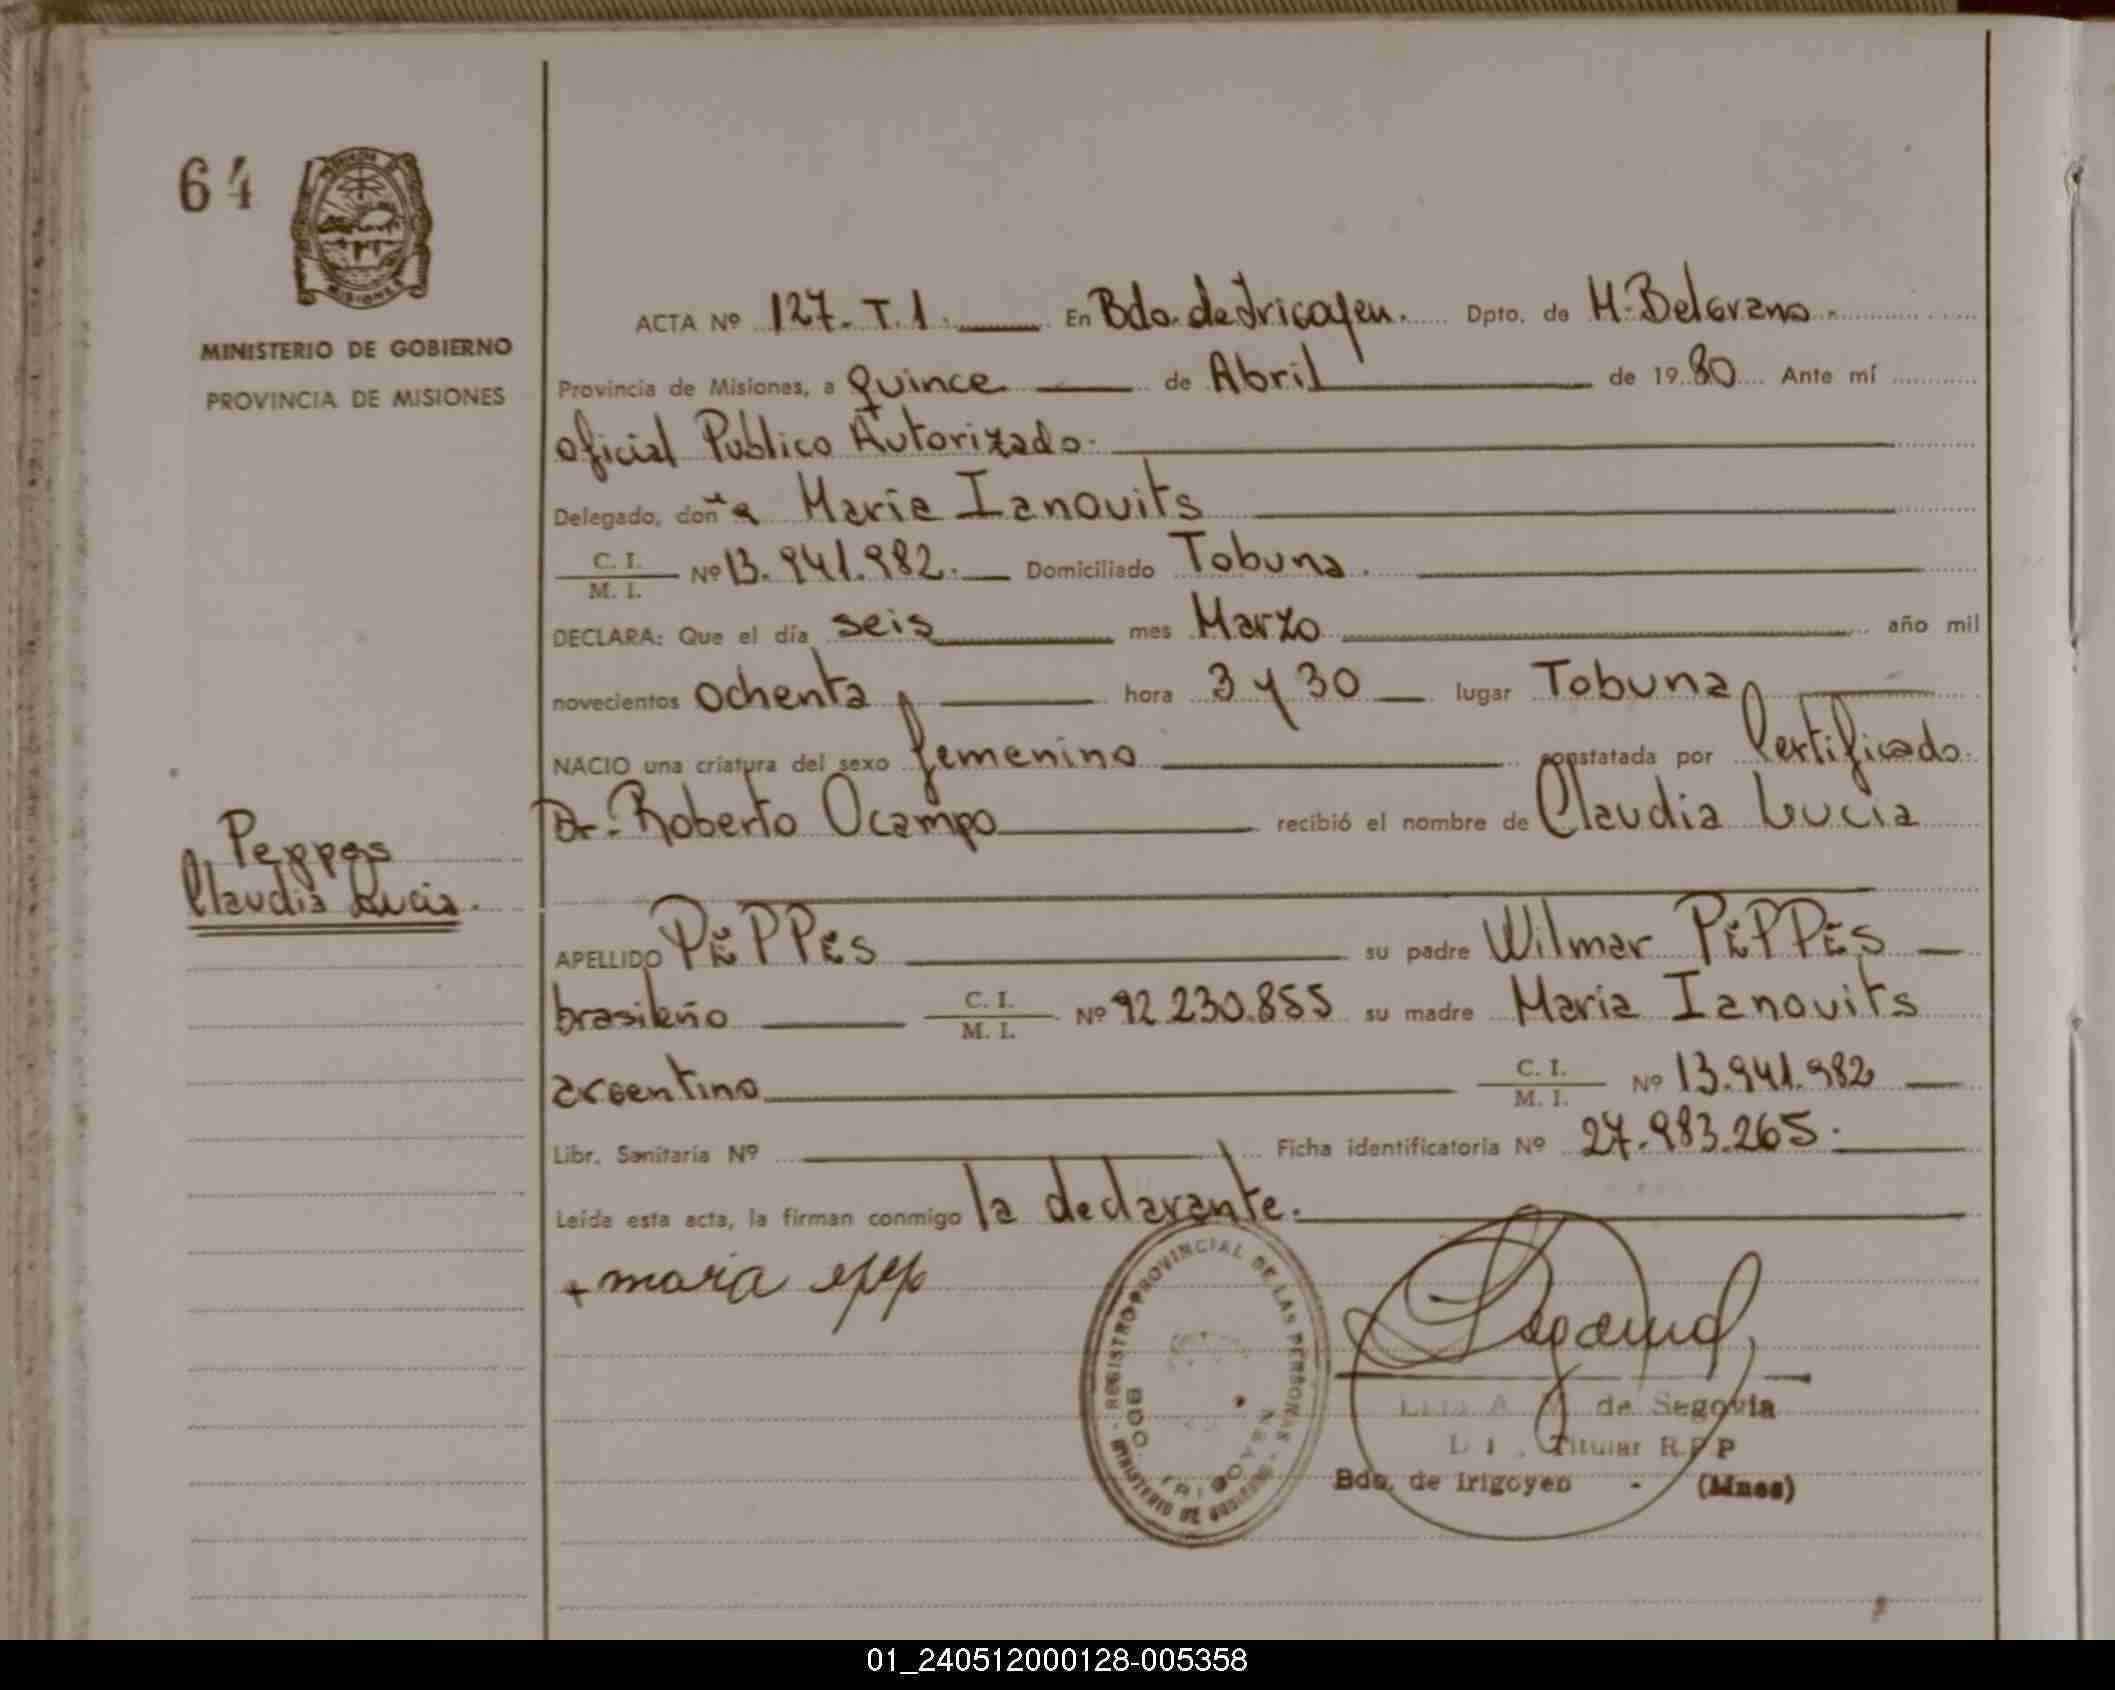 64
MISIONES
MINISTERIO DE GOBIERNO
PROVINCIA DE MISIONES
ACTA Nº 127. T. 1. En Bdo. de Irigoyen. Dpto. de M. Belgrano.
Provincia de Misiones, a quince de Abril de 1980 Ante mí
oficial Publico Autorizado.
Delegado, doña Maria Ianovits
C. I.
M. I. Nº 13.941.982. Domiciliado Tobuna.
DECLARA: Que el día seis mes Marzo año mil
novecientos ochenta hora 3 y 30 lugar Tobuna
NACIO una criatura del sexo femenino constatada por Certificado.
Dr. Roberto Ocampo recibió el nombre de Claudia Lucia
Peppes
Claudia Lucia.
APELLIDO PEPPES su padre Wilmar PEPPES
brasileño C. I. M. I. Nº 92.230.855 su madre Maria Ianovits
argentino C. I. M. I. Nº 13.941.982
Libr. Sanitaria Nº Ficha identificatoria Nº 27.983.265.
Leída esta acta, la firman conmigo la declarante.
+ maria
REGISTRO PROVINCIAL DE LAS PERSONAS - MINISTERIO DE GOBIERNO
BDO. IRIGOYEN
de Segovia
Titular R.P.P
Bdo. de Irigoyen - (Mnes)
01_240512000128-005358